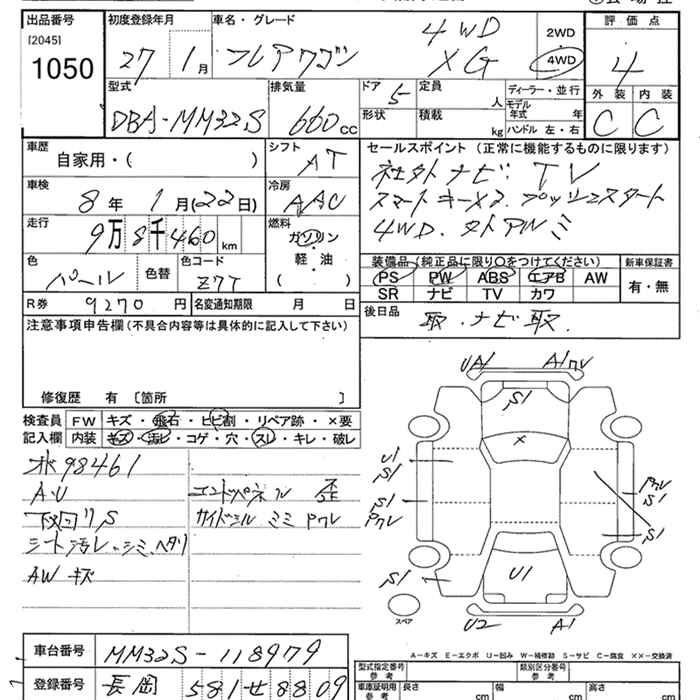 出品番号 初度登録年月 車名・グレード 評価点
[2045] 1050 27 1月 フレアワゴン 4WD XG 2WD 4WD 4
型式 排気量 ドア 定員 ディーラー・並行 外装 内装
DBA-MM32S 660cc 5 人 モデル年式 年 C C
形状 積載 kg ハンドル 左・右
車歴 シフト セールスポイント(正常に機能するものに限ります)
自家用・( ) AT 社外ナビ TV
車検 冷房 スマートキーX2. プッシュスタート
8年 1月(22日) AAC 4WD.
走行 燃料
9万8千460km ガソリン・軽・油
( )
装備品(純正品に限り〇をつけてください) 新車保証書
色 色替 色コード PS PW ABS エアB AW 有・無
パール Z7T SR ナビ TV カワ
R券 9270円 名変通知期限 月 日 後日品 取.ナビ取.
注意事項申告欄(不具合内容等は具体的に記入して下さい)
修復歴 有 〔箇所 〕
検査員記入欄 FW キズ・飛石・ヒビ割・リペア跡・×要
内装 キズ・汚レ・コゲ・穴・スレ・キレ・破レ
98461
A.U エンドパネル 歪
下回リS サイドシル ミミ
シート汚レ.シミ.ヘタリ
AW キズ
UA1 A1
S1
×
U1 S1
S1 S1
S1
S1 U1
スペア U2 A1
A=キズ E=エクボ U=凹み W=補修跡 S=サビ C=腐食 XX=交換済
車台番号 MM32S-118979 型式指定番号 類別区分番号
参考 参考
登録番号 長岡 581せ8809 車庫証明用 参考 長さ cm 幅 cm 高さ cm